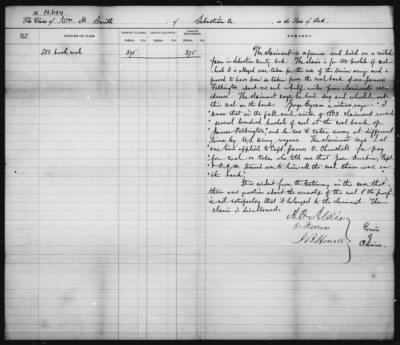 The Claim of Wm. M. Smith, of Sebastian Co. in the State of Ark.
NATURE OF CLAIM. AMOUNT CLAIMED. AMOUNT ALLOWED. AMOUNT DISALLOWED. REMARKS.
Dollars Cts. Dollars Cts. Dollars Cts.
500 bush. coal 375 375
The claimant is a farmer and lived on a rented
farm in Sebastian county, Ark. The claim is for 500 bushels of coal
which it is alleged was taken for the use of the Union army and is
proved to have been so taken from the coal bank of one James
Pilkington about one and a half miles from claimant's resi-
dence. The claimant says he had dug and owned
this coal on the bank. George Byram a witness says - "I
know that in the fall and winter of 1863 claimant owned
several hundred bushels of coal at the coal bank of
James Pilkington" and he saw it taken away at different
times by U.S. army wagons. The claimant says "at
one time applied to Capt. James O. Churchill for pay
for coal so taken who told me that
A.Q.M. turned over to him all the coal there was on
the bank."
It is evident from the testimony in the case that
there was question about the ownership of this coal & the proof
is not satisfactory that it belonged to the claimant. The
claim is disallowed.
A. O. Aldis
O. Ferriss
J. B. Howell
Com'rs
of
Claims.